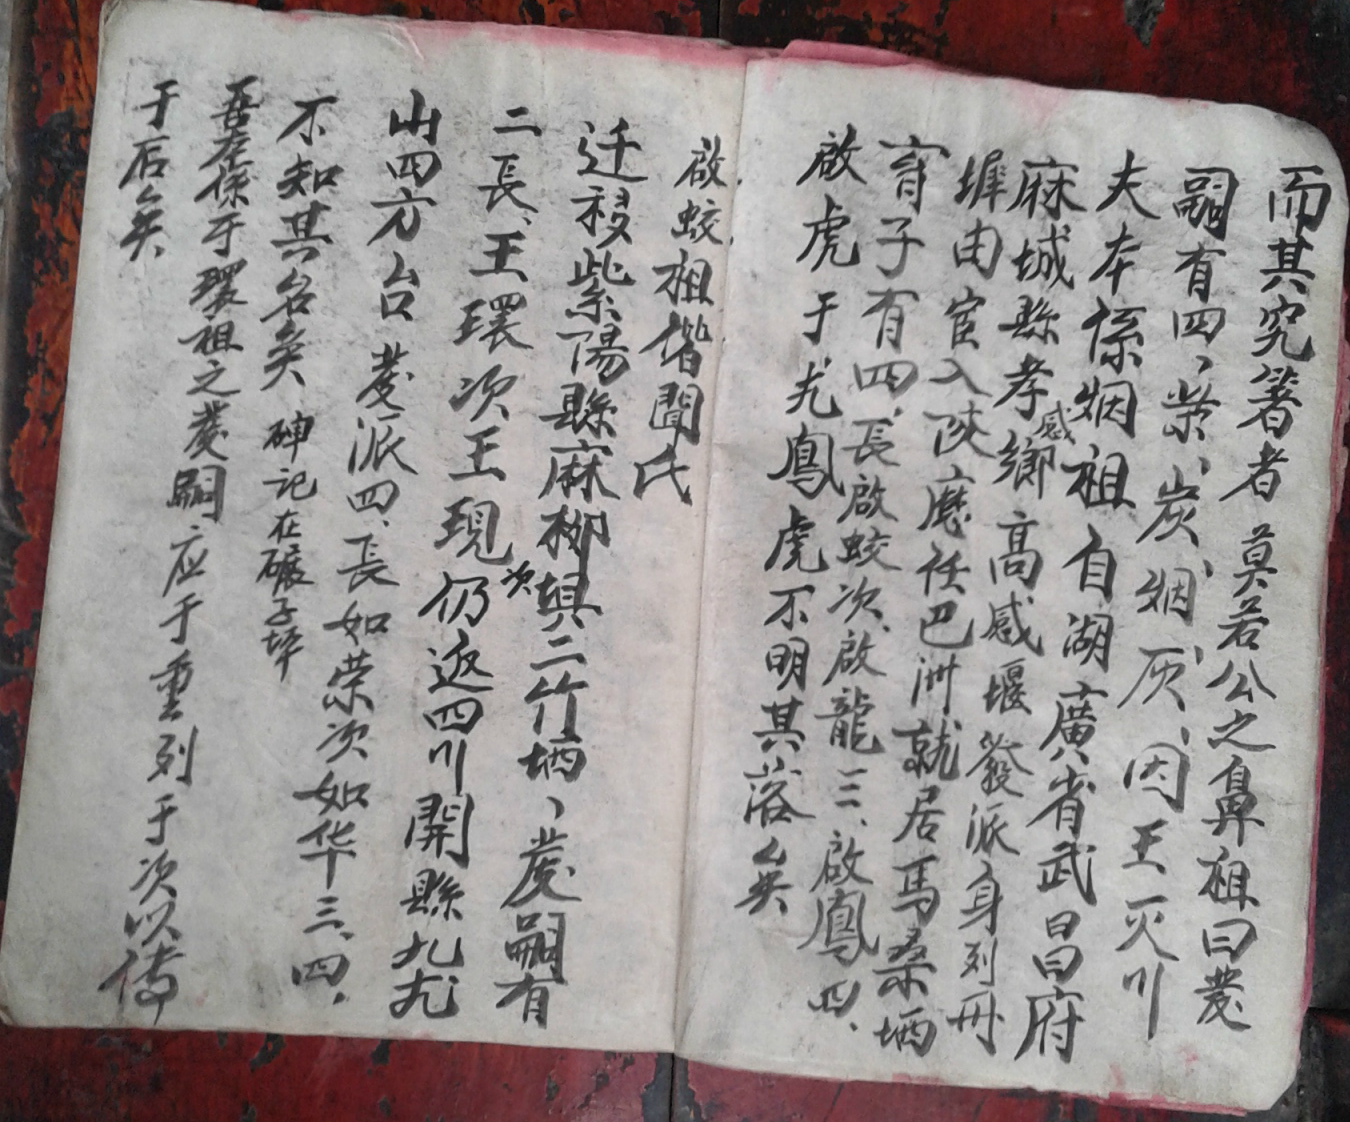 而其究著者莫若公之鼻祖曰發
嗣有四、柴、炭、烟、灰、因王灭川
夫本係烟祖自湖廣省武昌府
麻城縣孝感鄉高感堰發派身列丹
墀由宦入陝應任巴洲就居馬桑垇
育子有四、長啟蛟次、啟龍三、啟鳳四、
啟虎于尤鳳虎不明其落矣
啟蛟祖偕聞氏
迁移紫陽縣麻柳壩二竹垇、發嗣有
二長、王環次王現次仍返四川開縣九龙
山四方台發派四、長如荣次如华三、四、
不知其名矣碑记在碾子坪
吾左係于環祖之發嗣应于重列于次以傳
于后矣